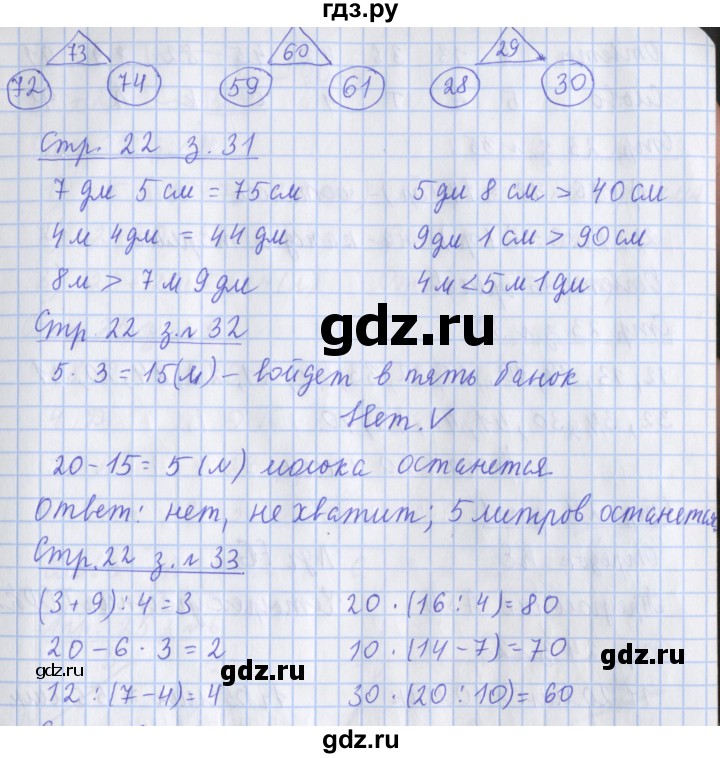 гдз.ру
73 60 29
72 74 59 61 28 30
Стр. 22 з. 31
7 дм 5 см = 75 см 5 дм 8 см > 40 см
4 м 4 дм = 44 дм 9 дм 1 см > 90 см
8 м > 7 м 9 дм 4 м < 5 м 1 дм
Стр. 22 з. № 32
gdz.ru
5 · 3 = 15 (л) – войдет в пять банок
Нет. V
20 – 15 = 5 (л) молока останется
Ответ: нет, не хватит; 5 литров останется
Стр. 22 з. № 33
(3 + 9) : 4 = 3 20 · (16 : 4) = 80
20 – 6 · 3 = 2 10 · (14 – 7) = 70
gdz.ru gdz.ru
12 : (7 – 4) = 4 30 · (20 : 10) = 60
gdz.ru